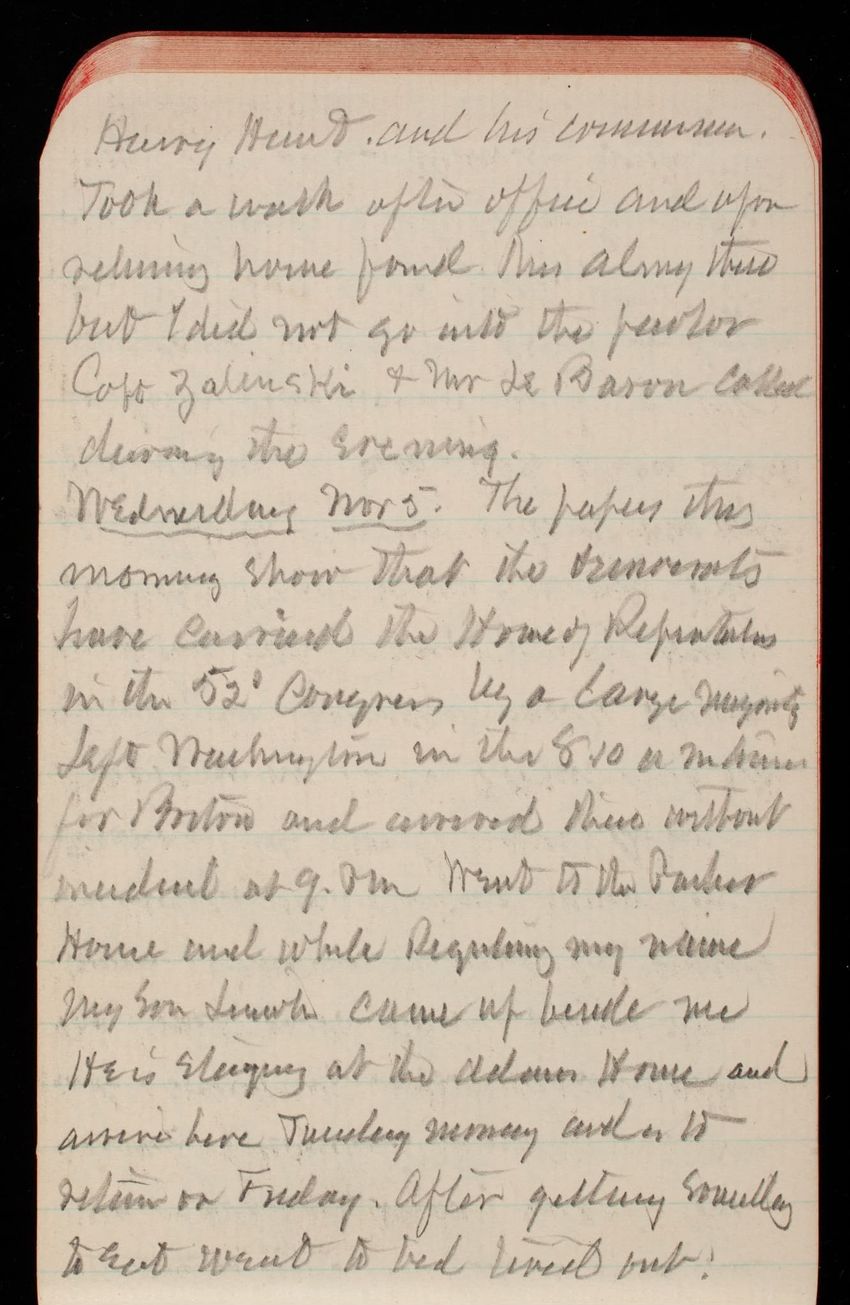 Henry Hunt. and his
Took a walk after office and upon
returning home found Mrs Almy there
but I did not go into the parlor
Capt Zalinski & Mr Le Baron called
during the Evening.
Wednesday Nov 5. The papers this
morning show that the democrats
have carried the House of
in the 52d Congress by a large majority
Left Washington in the 8 10 a m train
for Boston and arrived there without
incident at 9. P m Went to the Parker
House and while Registering my name
My Son came up beside me
He is Stopping at the Adams House and
arrived here Tuesday morning and is to
return on Friday. After getting Something
to Eat went to bed tired out.